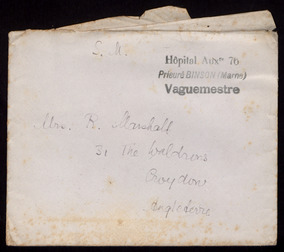 S. M.
Hôpital Auxre 76
Prieuré BINSON (Marne)
Vaguemestre
Mrs. K. Marshall
31 The Waldrons
Croydon
Angleterre